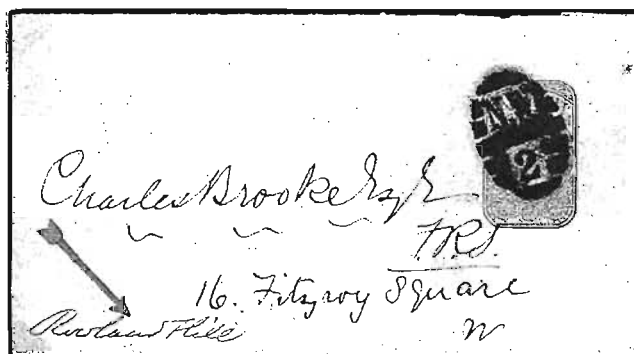 Charles Brooke Esqre
F.R.S.
16. Fitzroy Square
W
Rowland Hill
2